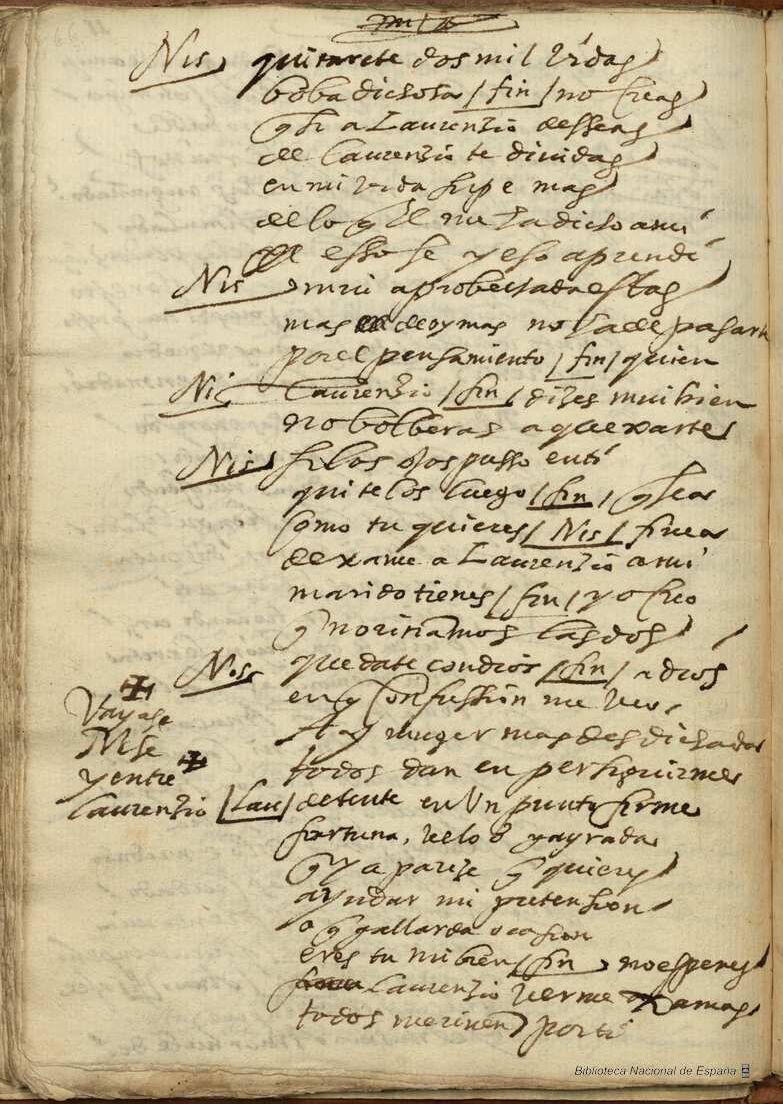 Nis quitarete dos mil vidas
boba dichosa / fin / no seas
q̃ si a Laurenzio desseas
de Laurenzio te dividas
en mi vida supe mas
de lo q̃ el me ha dicho a mi
esso se y eso aprendi
Nis mui aprobechada estas
mas de oy mas no ha de pasarte
por el pensamiento / fin / quien
Ni Laurenzio / fin / dizes mui bien
no bolberas a quexarte
Nis si los ojos pusso en ti
quitelos luego / fin / q̃ sea
como tu quieres / Nis / finea
dexame a Laurenzio a mi
marido tienes / fin / yo creo
q̃ no riñamos las dos
Nis quedate con dios / fin / a dios
en q̃ confussion me veo
ay muger mas desdichada
todos dan en perseguirme
Vayase
Nise
y entre
Laurenzio / Lau / detente en un punto firme
fortuna, veloz y ayrada
q̃ ya pareze q̃ quieres
ayudar mi pretension
o q̃ gallarda ocasion
eres tu mi bien / fin no esperes
Laurenzio verme jamas
todos me riñen por ti
Biblioteca Nacional de España